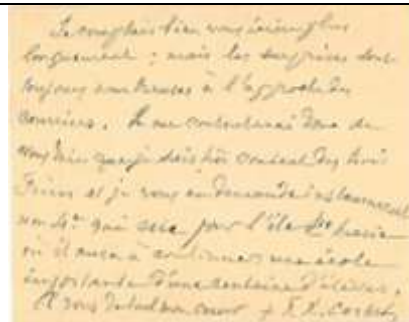 Je comptais bien vous écrire plus
longuement ; mais les surprises sont
toujours nombreuses à l'approche des
courriers. Je me contenterai donc de
vous dire que je suis très content des trois
Frères et je vous en demande instamment
un 4e qui sera pour l'île Ste Marie
où il aura à continuer une école
importante d'une centaine d'élèves.
A vous de tout mon cœur + F. X. Corbet